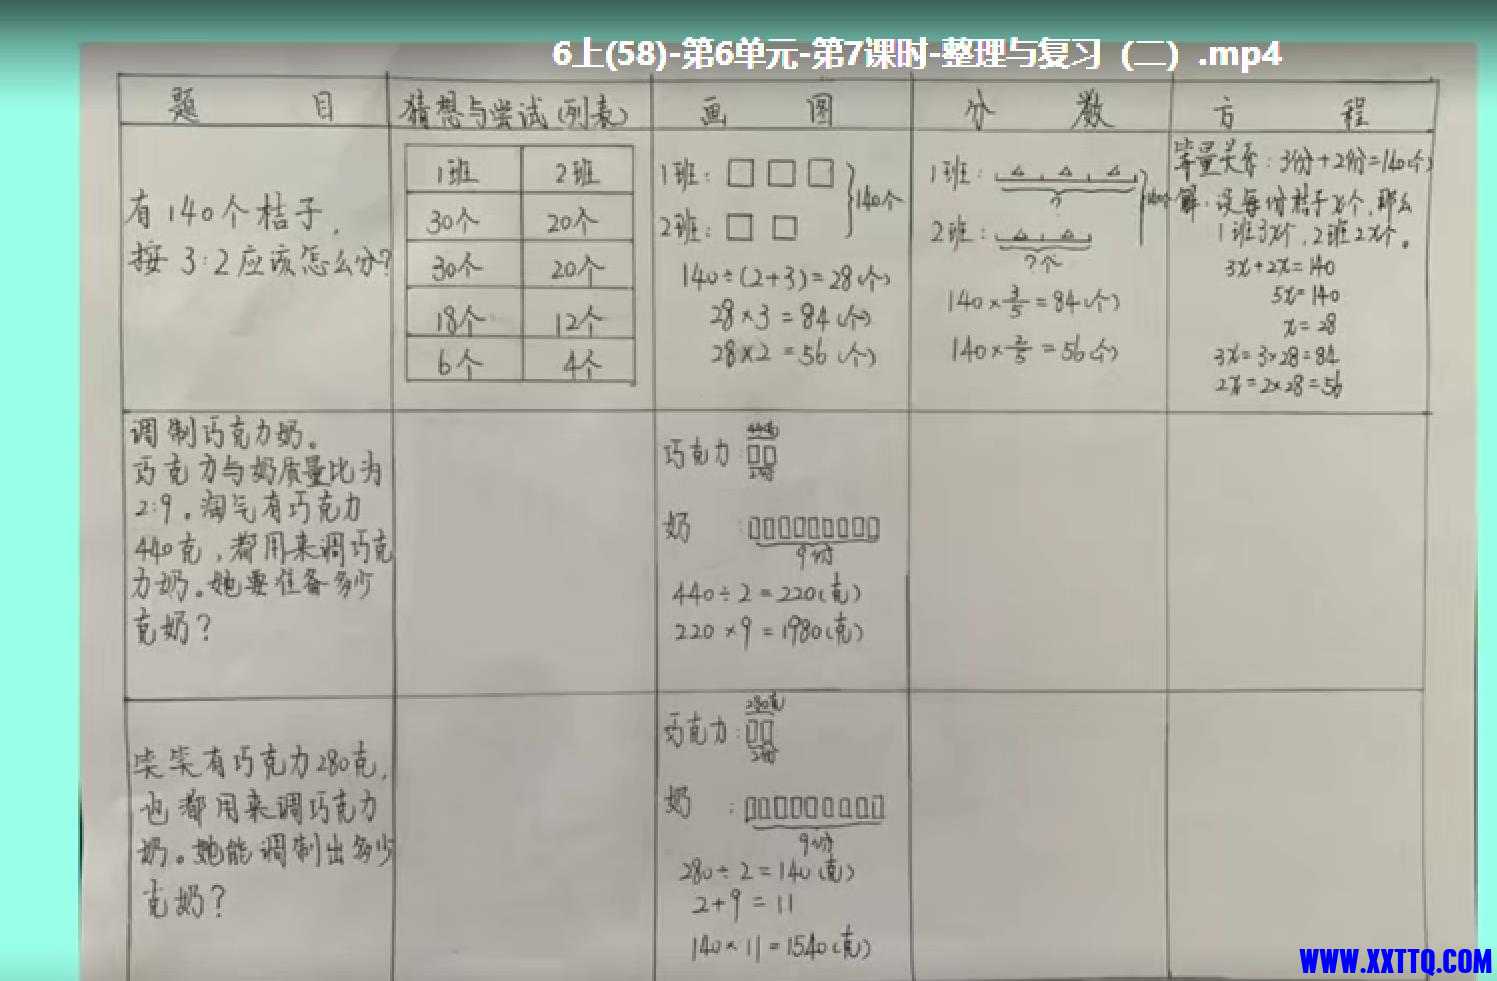 6上(58)-第6单元-第7课时-整理与复习（二）.mp4
题 目 猜想与尝试(列表) 画 图 分 数 方 程
有140个桔子，
按3:2应该怎么分?
1班 2班
30个 20个
30个 20个
18个 12个
6个 4个
1班：
2班：
140个
140÷(2+3)=28(个)
28×3=84(个)
28×2=56(个)
1班：
?
2班：
?个
140×3/5=84(个)
140×2/5=56(个)
等量关系：3份+2份=140个
解：设每份桔子x个，那么
1班3x个，2班2x个。
3x+2x=140
5x=140
x=28
3x=3×28=84
2x=2×28=56
调制巧克力奶。
巧克力与奶质量比为
2:9。淘气有巧克力
440克，都用来调巧克
力奶。她要准备多少
克奶?
440克
巧克力：
2份
奶：
9份
440÷2=220(克)
220×9=1980(克)
笑笑有巧克力280克，
也都用来调巧克力
奶。她能调制出多少
克奶?
280克
巧克力：
2份
奶：
9份
280÷2=140(克)
2+9=11
140×11=1540(克)
WWW.XXTTQ.COM